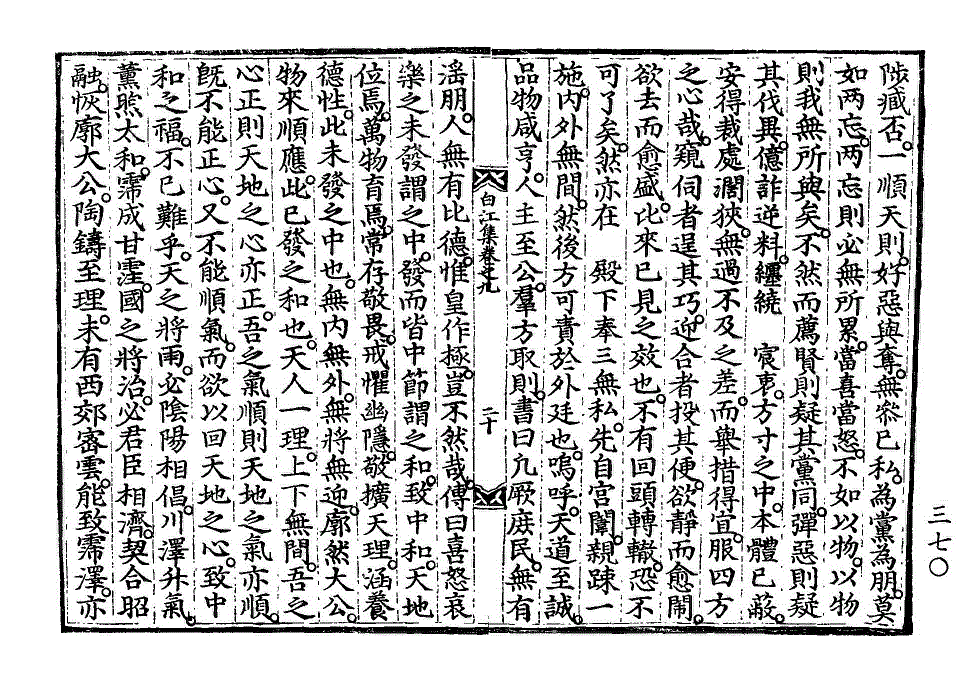 陟臧否。一順天則。好惡與奪。無參已私。為黨為朋。莫
如两忘。两忘則必無所累。當喜當怒。不如以物。以物
則我無所與矣。不然而薦賢則疑其黨同。彈惡則疑
其伐異。億詐逆料。纏繞　宸衷。方寸之中。本體已蔽。
安得裁處濶狹。無過不及之差。而舉措得宜。服四方
之心哉。窺伺者逞其巧。迎合者投其便。欲靜而愈鬧。
欲去而愈盛。比來已見之效也。不有回頭轉轍。恐不
可了矣。然亦在　殿下奉三無私。先自宮闈。親踈一
施。内外無間。然後方可責於外廷也。嗚呼。天道至誠。
品物咸亨。人主至公。羣方取則。書曰凢厥庶民。無有
白江集卷之九
二十
淫朋。人無有比德。惟皇作極。豈不然哉。傳曰喜怒哀
樂之未發謂之中。發而皆中節謂之和。致中和。天地
位焉。萬物育焉。常存敬畏。戒懼幽隱。敬擴天理。涵養
德性。此未發之中也。無内無外。無將無迎。廓然大公。
物來順應。此已發之和也。天人一理。上下無間。吾之
心正則天地之心亦正。吾之氣順則天地之氣亦順。
旣不能正心。又不能順氣。而欲以回天地之心。致中
和之福。不已難乎。天之將雨。必陰陽相倡。川澤升氣。
薰烝太和。霈成甘霔。國之將治。必君臣相濟。契合昭
融。恢廓大公。陶鑄至理。未有西郊密雲。能致霈澤。亦
三七〇